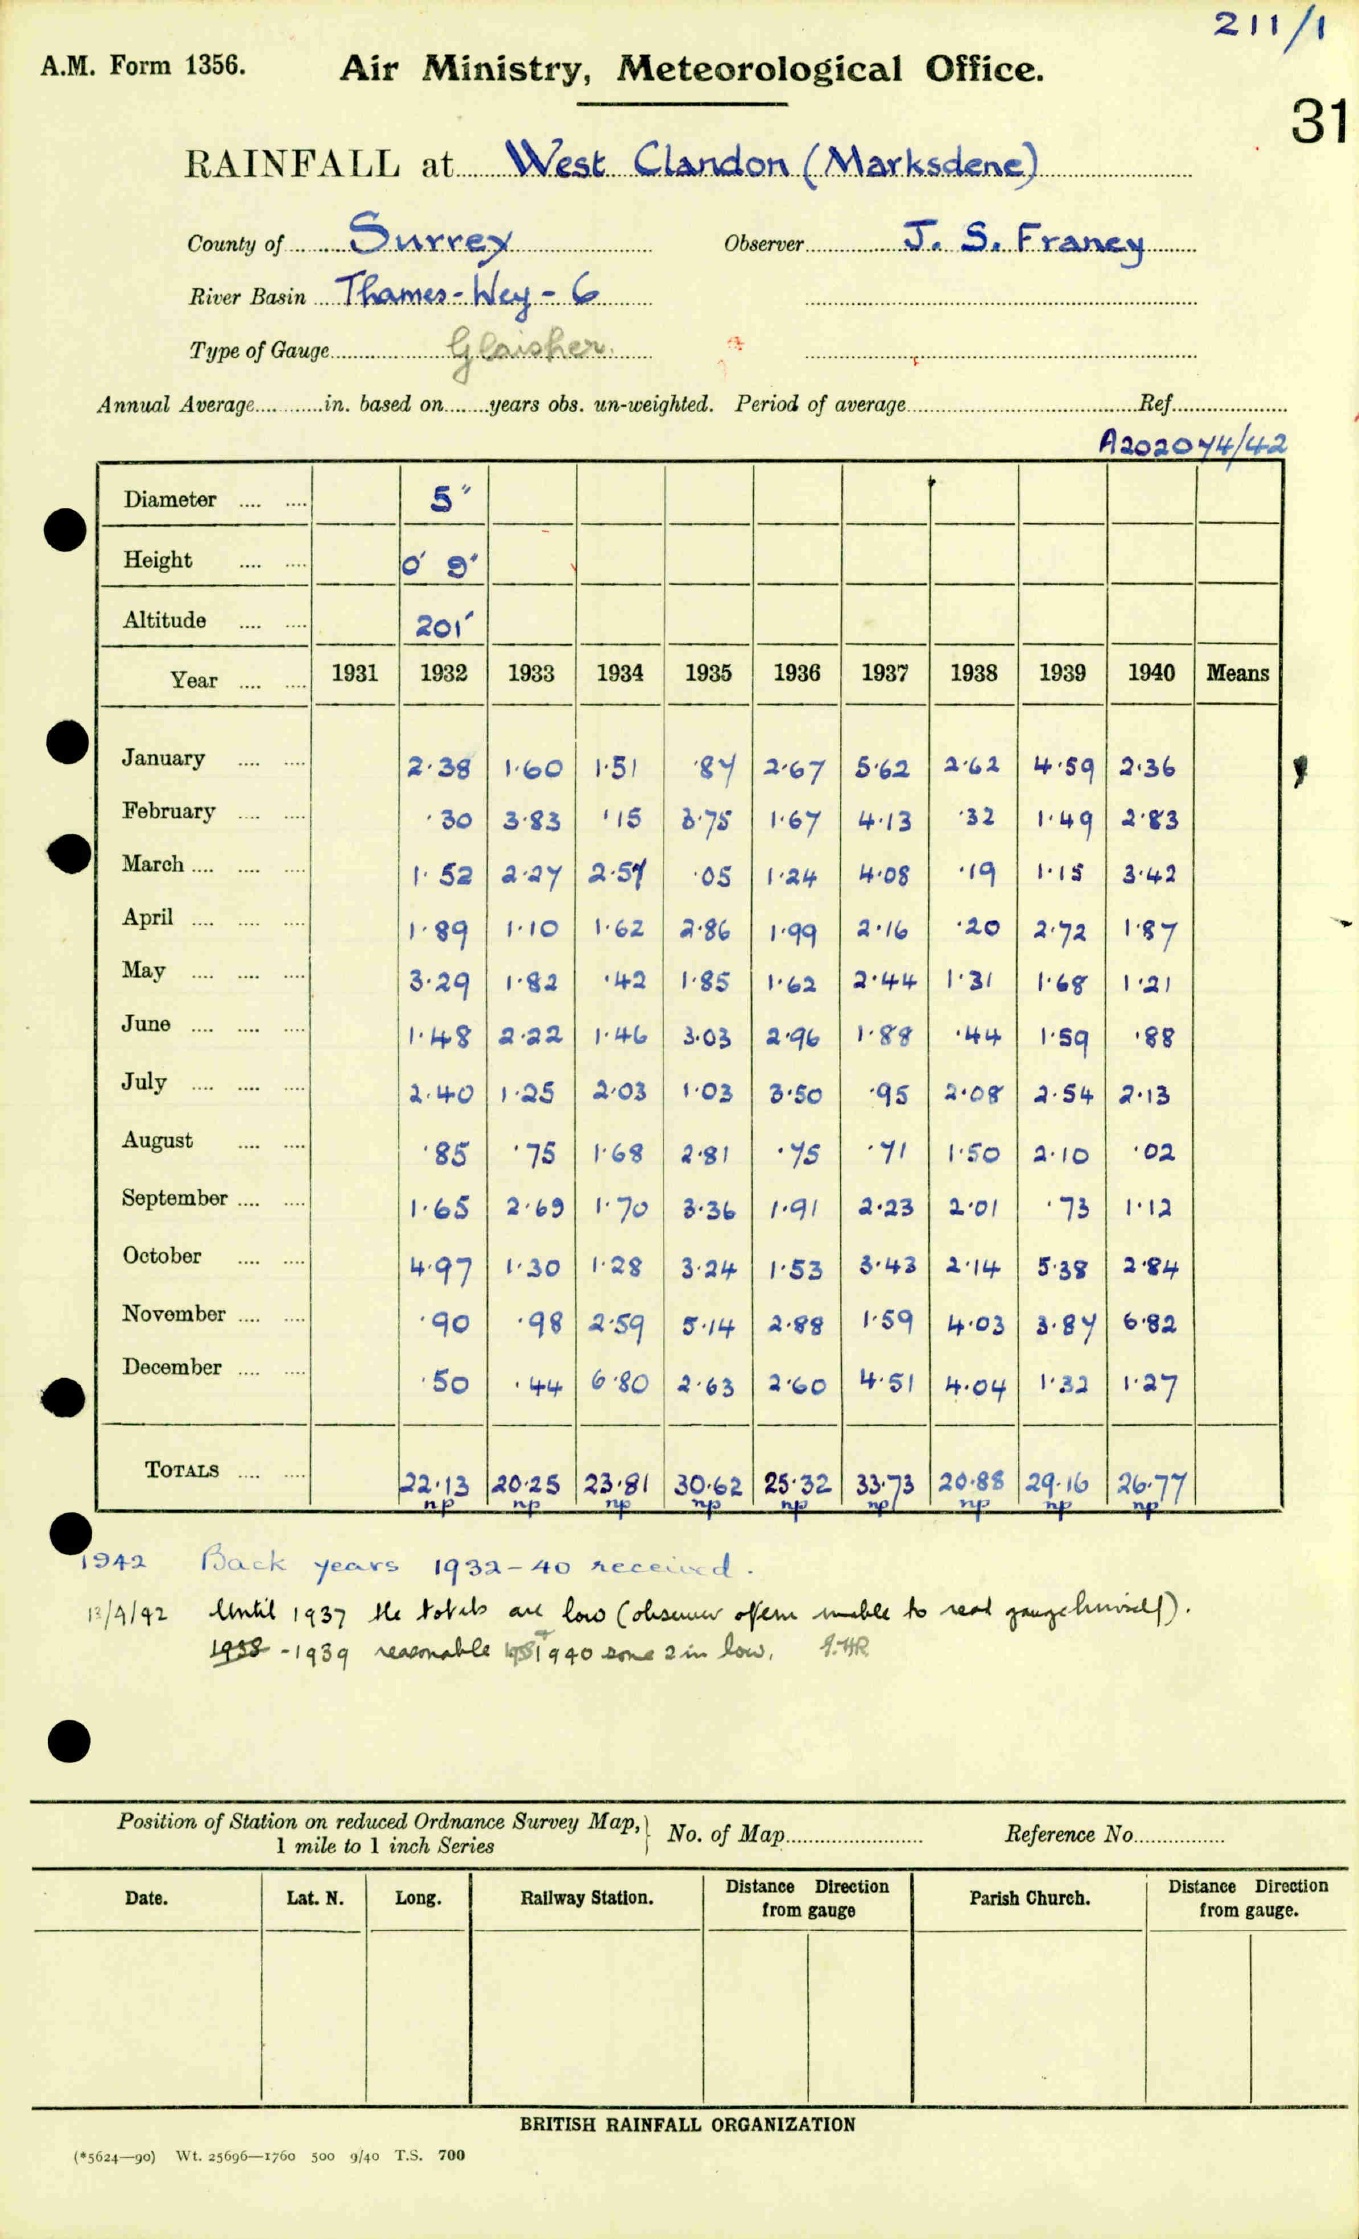 211/1
A.M. Form 1356. Air Ministry, Meteorological Office.
31
RAINFALL at West Clandon (Marksdene)
County of Surrey Observer J. S. Franey
River Basin Thames-Wey-6
Type of Gauge Glaisher.
Annual Average in. based on years obs. un-weighted. Period of average Ref.
A202074/42
Diameter 5"
Height 0' 9"
Altitude 201'
Year 1931 1932 1933 1934 1935 1936 1937 1938 1939 1940 Means
January 2.38 1.60 1.51 .87 2.67 5.62 2.62 4.59 2.36
February .30 3.83 .15 3.75 1.67 4.13 .32 1.49 2.83
March 1.52 2.27 2.57 .05 1.24 4.08 .19 1.15 3.42
April 1.89 1.10 1.62 2.86 1.99 2.16 .20 2.72 1.87
May 3.29 1.82 .42 1.85 1.62 2.44 1.31 1.68 1.21
June 1.48 2.22 1.46 3.03 2.96 1.88 .44 1.59 .88
July 2.40 1.25 2.03 1.03 3.50 .95 2.08 2.54 2.13
August .85 .75 1.68 2.81 .75 .71 1.50 2.10 .02
September 1.65 2.69 1.70 3.36 1.91 2.23 2.01 .73 1.12
October 4.97 1.30 1.28 3.24 1.53 3.43 2.14 5.38 2.84
November .90 .98 2.59 5.14 2.88 1.59 4.03 3.87 6.82
December .50 .44 6.80 2.63 2.60 4.51 4.04 1.32 1.27
TOTALS 22.13 20.25 23.81 30.62 25.32 33.73 20.88 29.16 26.77
np np np np np np np np np
1942 Back years 1932-40 received.
Until 1937 the totals are low (observer often unable to read gauge himself).
1938 - 1939 reasonable 1940 some 2 in low.
Position of Station on reduced Ordnance Survey Map, 1 mile to 1 inch Series No. of Map Reference No.
Date. Lat. N. Long. Railway Station. Distance Direction from gauge Parish Church. Distance Direction from gauge.
BRITISH RAINFALL ORGANIZATION
(*5624—90) Wt. 25696—1760 500 9/40 T.S. 700